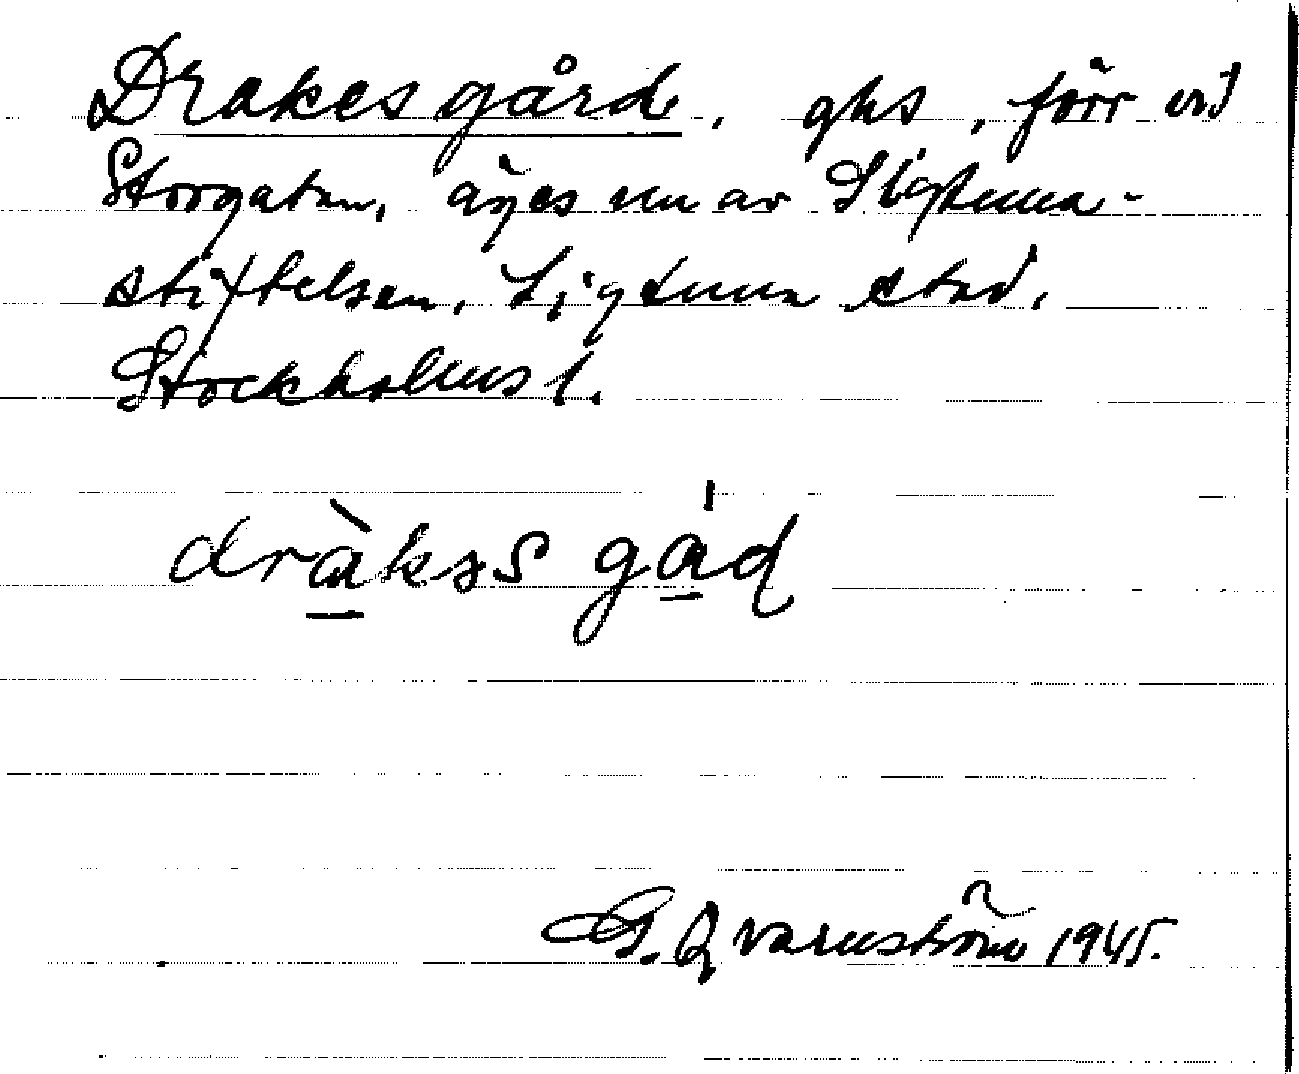 Drakesgård, ghs, förr vid
Storgatan, äges nu av Sigtuna-
stiftelsen, Sigtuna stad,
Stockholms l.
dràkəs gád
G. Qvarnström 1945.